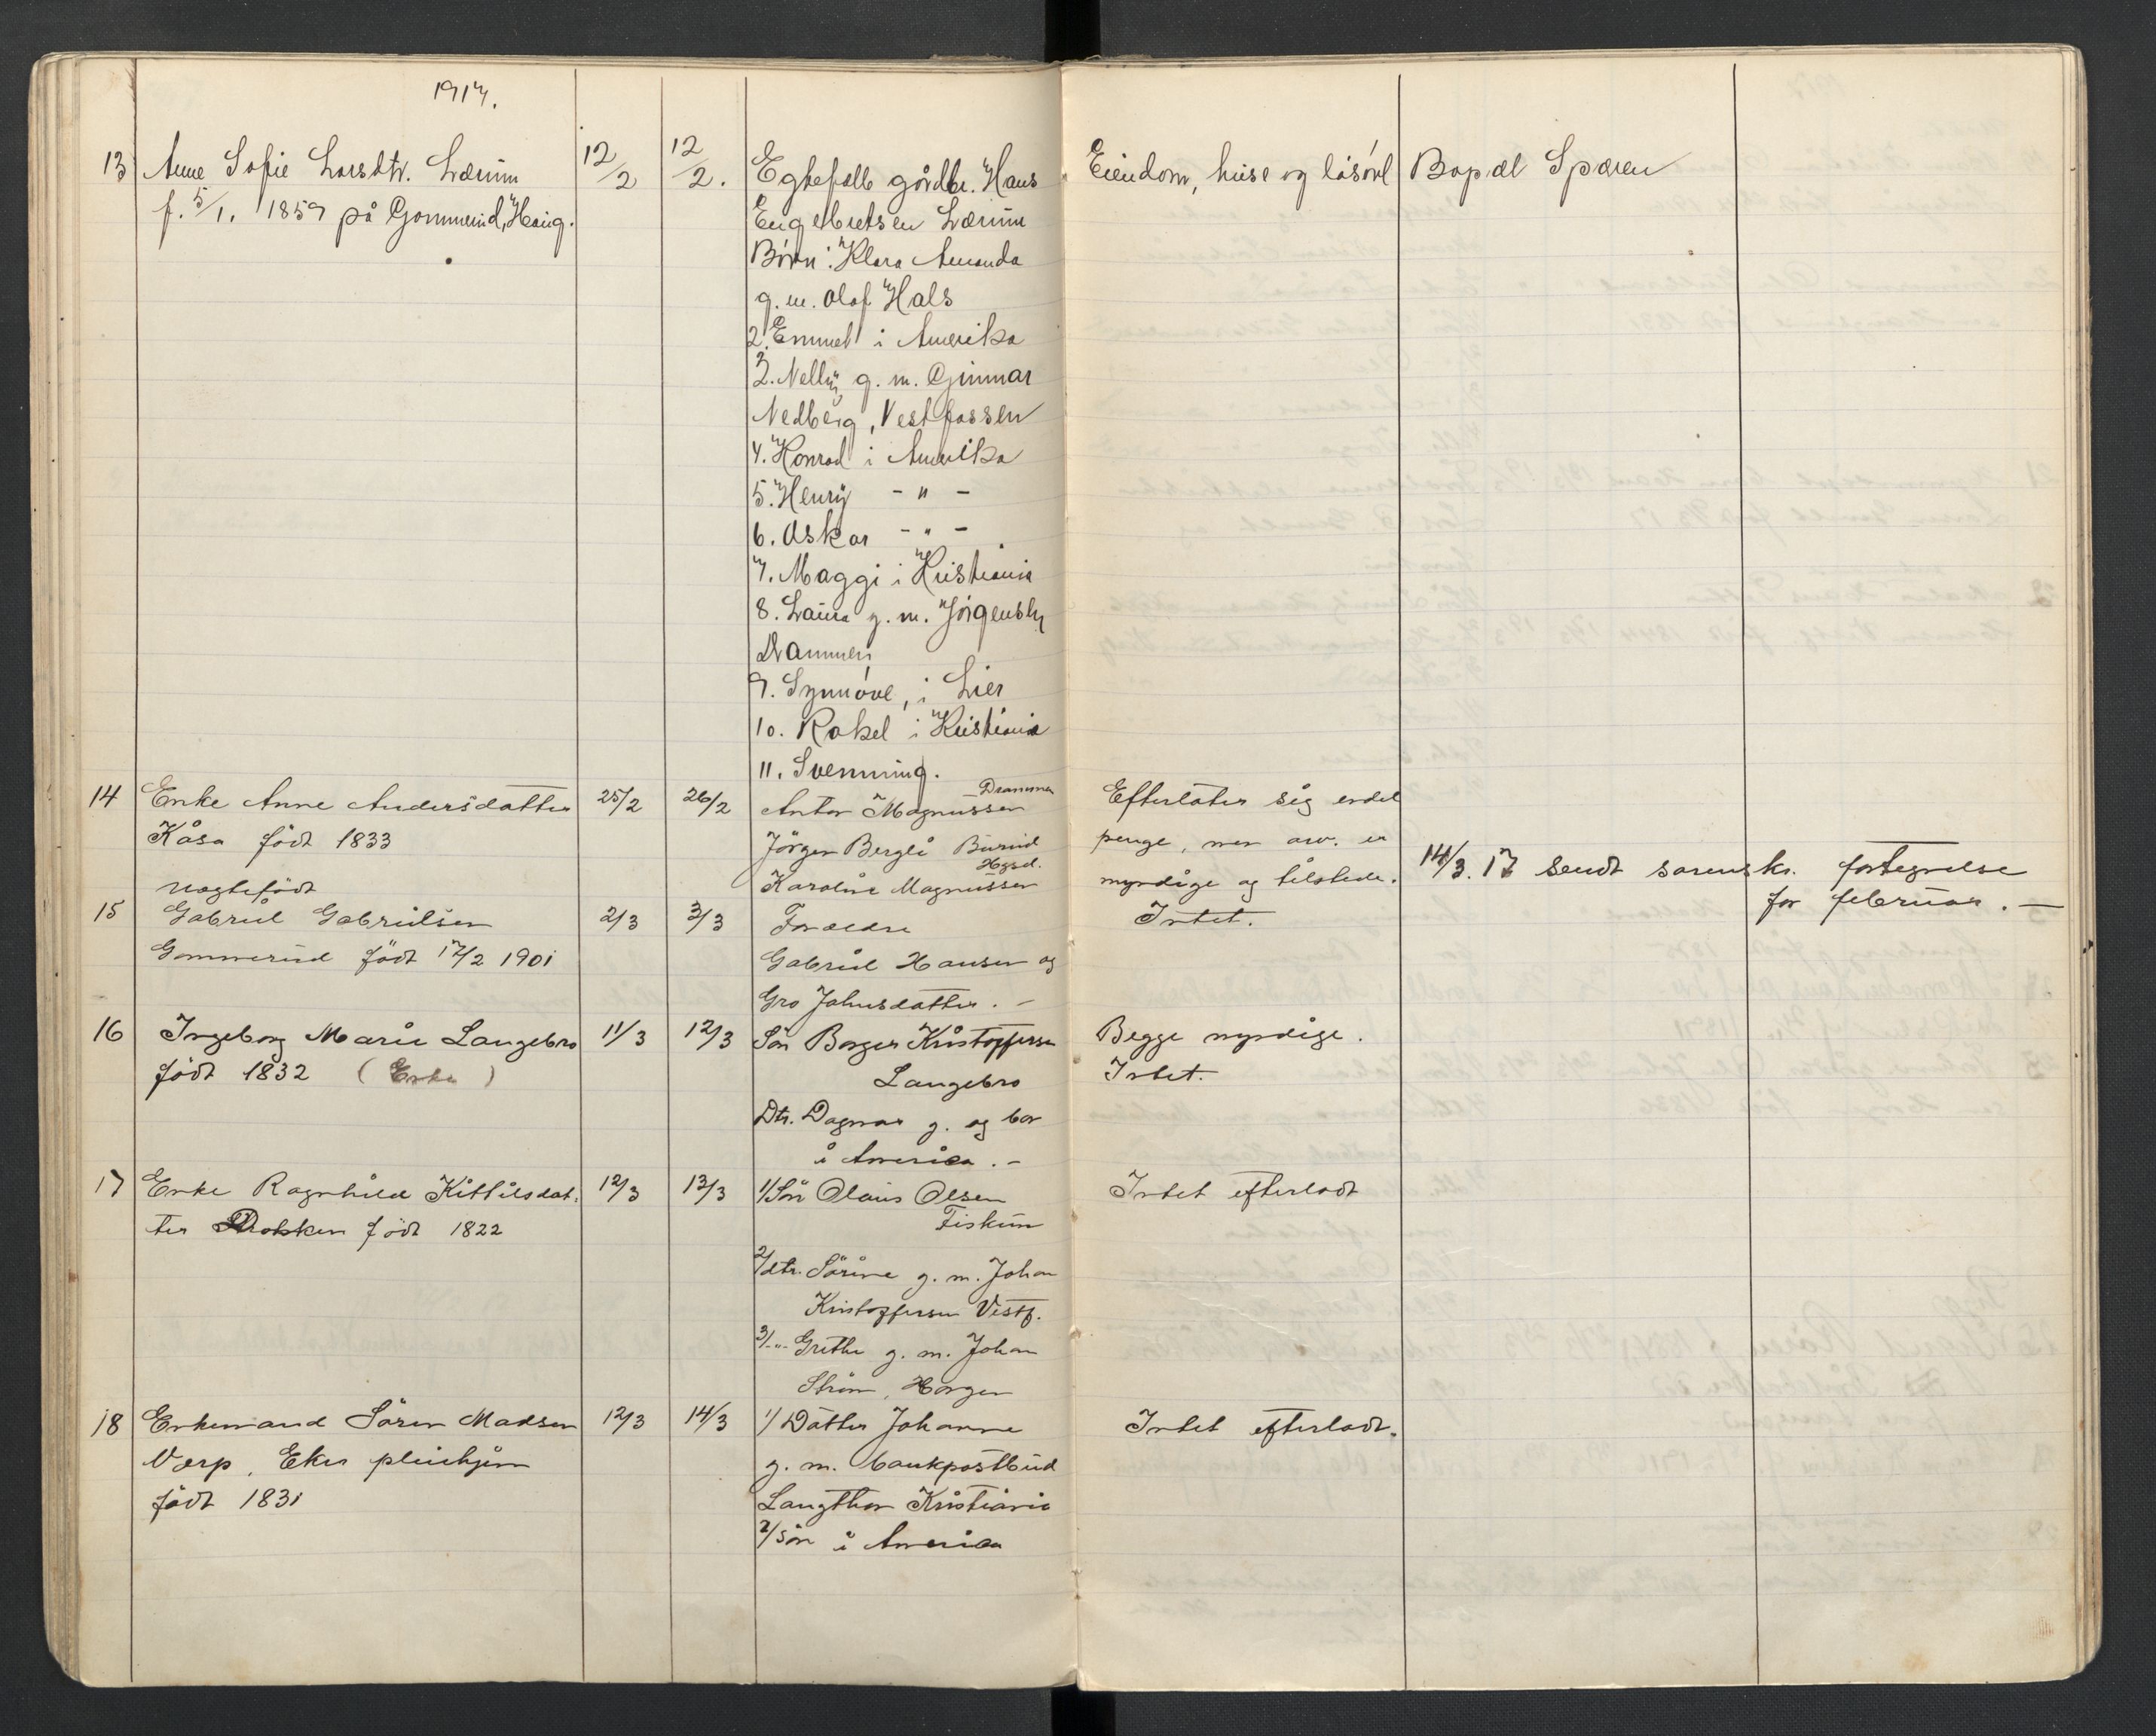 1917.
13 Anne Sofie Larsdtr. Lærum 12/2 12/2. Egtefelle gårdbr. Hans Eiendom, huse og løsøre Bopæl Spæren
f. 5/1. 1859 på Gommerud, Haug. Engelbretsen Lærum
Børn: Klara Amanda
g. m. Olaf Hals
2. Emmel i Amerika
3. Nelly g. m. Gunnar
Nedberg, Vestfossen
4. Konrad i Amerika
5. Henry - " -
6. Oskar - " -
7. Maggi i Kristiania
8. Laura g. m. Jørgensen
Drammen
9. Synnøve, i Lier
10. Rakel i Kristiania
11. Svenning.
14 Enke Anne Andersdatter 25/2 26/2 Anton Magnussen Drammen Efterlater sig endel
Kåsa født 1833 Jörgen Bergli Burud Hgsd. penge, men arv. er
Karoline Magnussen myndige og tilstede. 14/3. 17 Sendt sorenskr. fortegnelse
for februar. —
uegtefödt
15 Gabriel Gabrielsen 2/3 3/3 Forældre Intet.
Gommerud født 17/2 1901 Gabriel Hansen og
Gro Johnsdatter. -
16 Ingeborg Marie Langebro 11/3 12/3 Sön Borger Kristoffersen Begge myndige.
født 1832 (Enke) Langebro Intet.
Dtr. Dagmar g. og bor
i America. -
17 Enke Ragnhild Kittilsdat- 12/3 13/3 1/ Sön Olaus Olsen Intet efterladt
ter født 1822 Fiskum
2/ dtr. Sörine g. m. Johan
Kristoffersen Vestf.
3/ -"- Grethe g. m. Johan
Ström, Horgen
18 Enkemand Sören Madsen 12/3 14/3 1/ Datter Johanne Intet efterladt.
Værp, Eker pleiehjem g. m. bankpostbud
født 1831 Langthon Kristiania
2/ sön i America